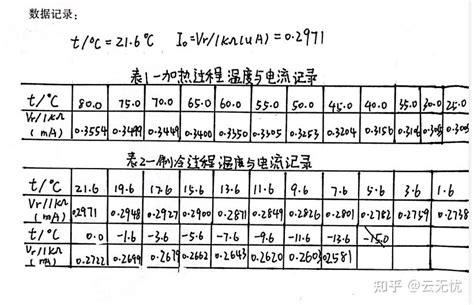 数据记录:
t/°C = 21.6°C I₀=Vr/1kΩ(uA)=0.2971
表1-加热过程温度与电流记录
t/°C 80.0 75.0 70.0 65.0 60.0 55.0 50.0 45.0 40.0 35.0 30.0 25.0
Vr/1kΩ (mA) 0.3554 0.3499 0.3449 0.3400 0.3350 0.3305 0.3253 0.3204 0.3156
表2-制冷过程温度与电流记录
t/°C 21.6 19.6 17.6 15.6 13.6 11.6 9.6 7.6 5.6 3.6 1.6
Vr/1kΩ (mA) 0.2971 0.2948 0.2927 0.2900 0.2871 0.2849 0.2826 0.2801 0.2782 0.2759 0.2738
t/°C 0.0 -1.6 -3.6 -5.6 -7.6 -9.6 -11.6 -13.6 -15.0
Vr/1kΩ (mA) 0.2722 0.2699 0.2679 0.2662 0.2643 0.2620 0.2603 0.2581
知乎 @云无忧